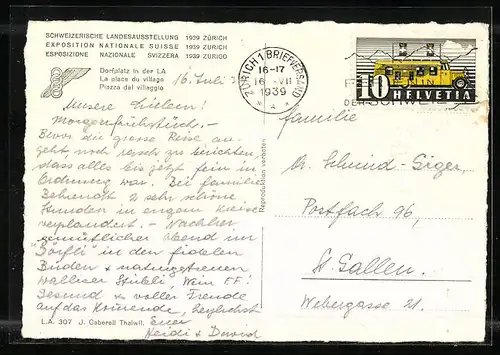 SCHWEIZERISCHE LANDESAUSSTELLUNG 1939 ZÜRICH
EXPOSITION NATIONALE SUISSE 1939 ZURICH
ESPOSIZIONE NAZIONALE SVIZZERA 1939 ZURIGO
Dorfplatz in der LA
La place du village
Piazza del villaggio
16. Juli
Unsere Lieben!
Morgenfrühstück. –
Bevor die grosse Reise an-
geht noch rasch zu berichten,
dass alles bis jetzt fein in
Ordnung war. Bei Familie
Behrendt 2 sehr schöne
Stunden in engem Kreise
verplaudert. – Nachher
gemütlicher Abend im
Dörfli in den fidelen
Buden & naturgetreuen
Walliser Stübli, Wein FF!
Gesund & voller Freude
auf das Kommende, herzlichst
Euer
Heidi & David
L.A. 307 J. Gaberell Thalwil.
Reproduktion verboten
ZÜRICH 1 BRIEFVERSAND
16-17
16 VII
1939
DER SCHWEIZ
10 HELVETIA
Familie
Dr. Schmid-Siger,
Postfach 96,
St. Gallen.
Webergasse 21.